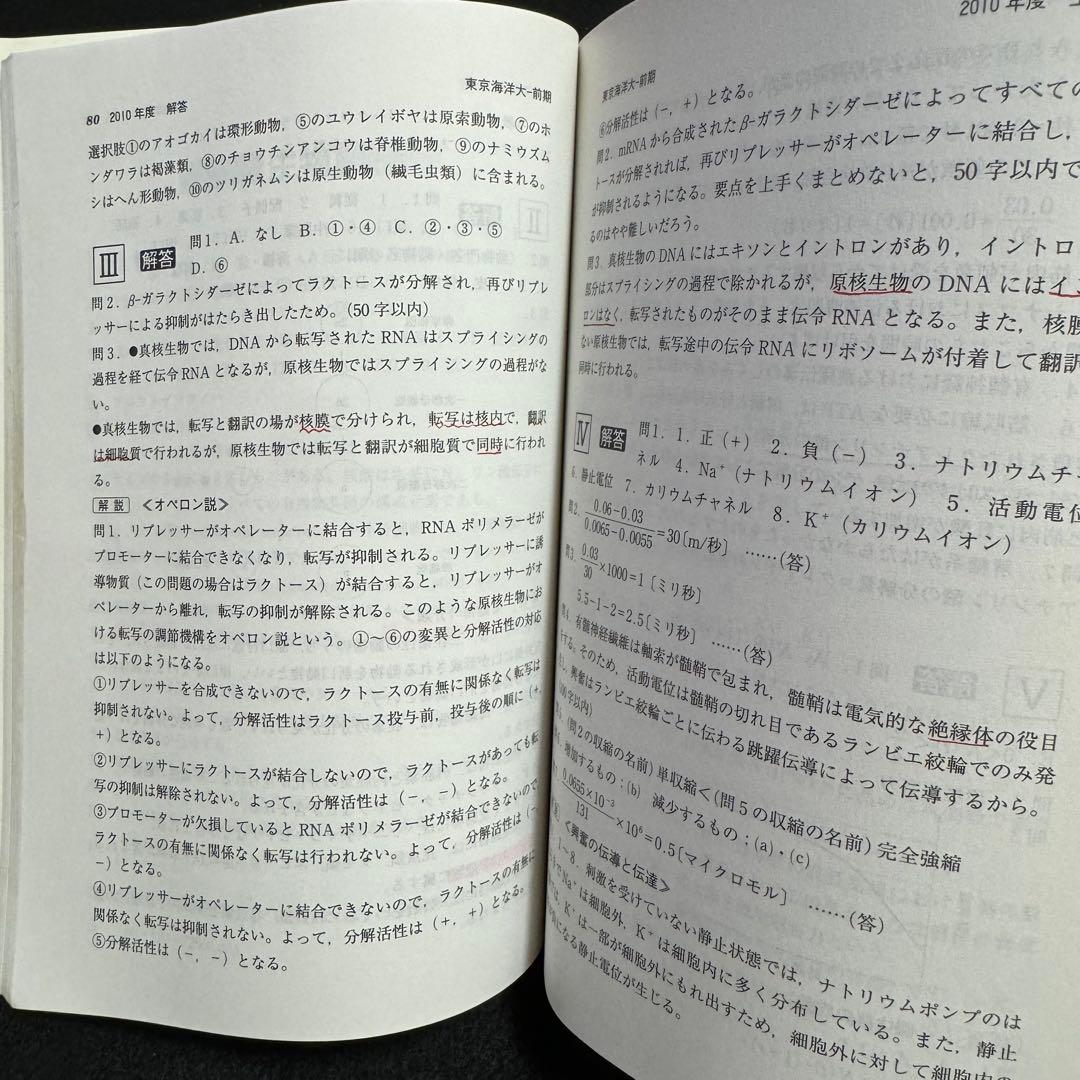 東京海洋大-前期
80 2010年度 解答
選択肢①のアオゴカイは環形動物，⑤のユウレイボヤは原索動物，⑦のホ
ンダワラは褐藻類，⑧のチョウチンアンコウは脊椎動物，⑨のナミウズム
シはへん形動物，⑩のツリガネムシは原生動物（繊毛虫類）に含まれる。
Ⅲ 解答 問1．A．なし B．①・④ C．②・③・⑤
D．⑥
問2．β-ガラクトシダーゼによってラクトースが分解され，再びリプレ
ッサーによる抑制がはたらき出したため。（50字以内）
問3．●真核生物では，DNAから転写されたRNAはスプライシングの
過程を経て伝令RNAとなるが，原核生物ではスプライシングの過程がな
い。
●真核生物では，転写と翻訳の場が核膜で分けられ，転写は核内で，翻訳
は細胞質で行われるが，原核生物では転写と翻訳が細胞質で同時に行われ
る。
解説 ≪オペロン説≫
問1．リプレッサーがオペレーターに結合すると，RNAポリメラーゼが
プロモーターに結合できなくなり，転写が抑制される。リプレッサーに誘
導物質（この問題の場合はラクトース）が結合すると，リプレッサーがオ
ペレーターから離れ，転写の抑制が解除される。このような原核生物にお
ける転写の調節機構をオペロン説という。①～⑥の変異と分解活性の対応
は以下のようになる。
①リプレッサーを合成できないので，ラクトースの有無に関係なく転写は
抑制されない。よって，分解活性はラクトース投与前，投与後の順に（+，
+）となる。
②リプレッサーにラクトースが結合しないので，ラクトースがあっても転
写の抑制は解除されない。よって，分解活性は（-，-）となる。
③プロモーターが欠損しているとRNAポリメラーゼが結合できないので
ラクトースの有無に関係なく転写は行われない。よって，分解活性は（-，
-）となる。
④リプレッサーがオペレーターに結合できないので，ラクトースの有無に
関係なく転写は抑制されない。よって，分解活性は（+，+）となる。
⑤分解活性は（-，-）となる。
2010年度
東京海洋大-前期
⑥分解活性は（-，+）となる。
問2．mRNAから合成されたβ-ガラクトシダーゼによってすべての
トースが分解されれば，再びリプレッサーがオペレーターに結合し，
が抑制されるようになる。要点を上手くまとめないと，50字以内で
るのはやや難しいだろう。
問3．真核生物のDNAにはエキソンとイントロンがあり，イントロ
部分はスプライシングの過程で除かれるが，原核生物のDNAにはイ
ロンはなく，転写されたものがそのまま伝令RNAとなる。また，核膜
ない原核生物では，転写途中の伝令RNAにリボソームが付着して翻訳
同時に行われる。
Ⅳ 解答 問1．1．正（+） 2．負（-） 3．ナトリウムチャ
ネル 4．Na⁺（ナトリウムイオン） 5．活動電位
6．静止電位 7．カリウムチャネル 8．K⁺（カリウムイオン）
問2．(0.06-0.03)/(0.0065-0.0055)=30〔m/秒〕 ……（答）
問3．0.03/30×1000=1〔ミリ秒〕
5.5-1-2=2.5〔ミリ秒〕 ……（答）
問4．有髄神経繊維は軸索が髄鞘で包まれ，髄鞘は電気的な絶縁体の役目
をする。そのため，活動電位は髄鞘の切れ目であるランビエ絞輪でのみ発
生し，興奮はランビエ絞輪ごとに伝わる跳躍伝導によって伝導するから。
字以内）
（問2の収縮の名前）単収縮 （問5の収縮の名前）完全強縮
増加するもの：(b) 減少するもの：(a)・(c)
0.0655×10⁻³/131×10⁶=0.5〔マイクロモル〕 ……（答）
≪興奮の伝導と伝達≫
1～8．刺激を受けていない静止状態では，ナトリウムポンプのは
Na⁺は細胞外，K⁺は細胞内に多く分布している。また，静止
は，K⁺は一部が細胞外にもれ出すため，細胞外に対して細胞内の
になる静止電位が生じる。